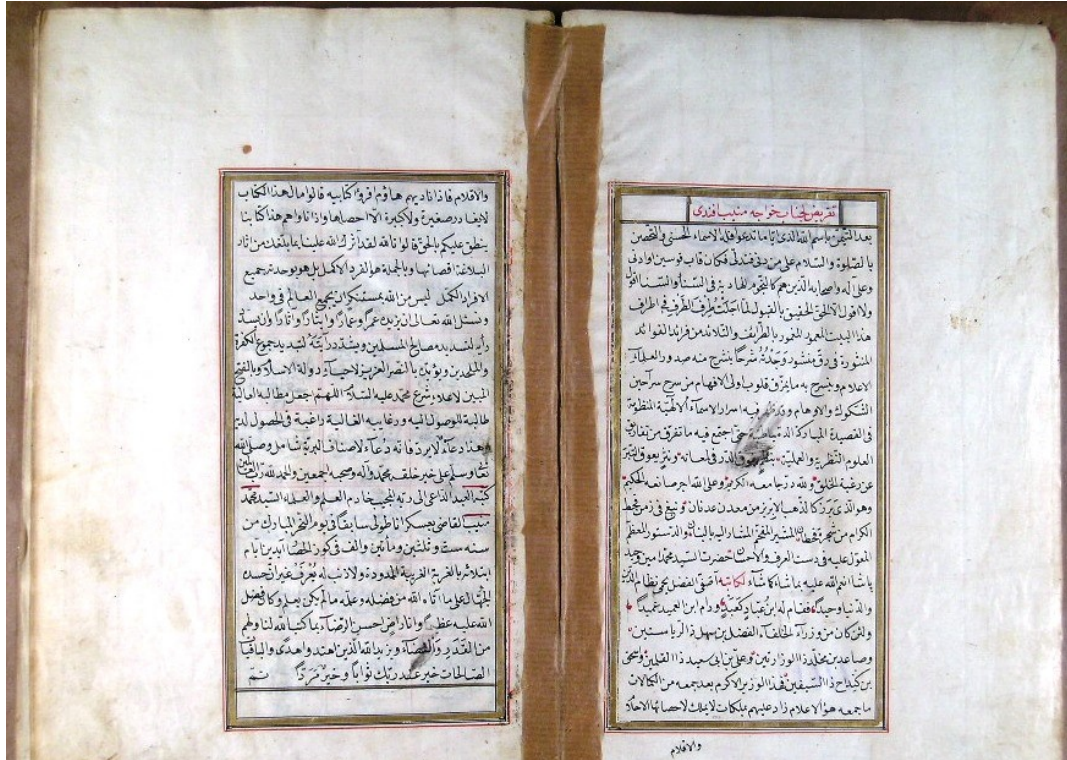 تقريض لجناب خواجه منيب افندی
بعد التيمن باسم الله الذی ايّا ما تدعوا فله الاسماء الحسنی والتحصن
بالصّلوة والسّلام علی من دنی فتدلّی فكان قاب قوسين او ادنی
وعلی آله واصحابه الذين هم كالنجوم الهادية فی السّنا والسنا اقول
ولا اقول الّا الحقّ الحقيق بالقبول لما اجلتُ طِرف الطَّرف فی اطراف
هذا البيت المعمور المغمور بالطّرائف والتّلائد من فرائد الفوائد
المنثورة فی رقّ منشور وَجَدْتُهُ شَرحًا ينشرح منه صدور العلمآء
الاعلام ويسرح به ما يمزّق قلوب اولی الافهام من سرح سراحين
الشّكوك والاوهام وقد فيه اسرار الاسمآء الالهيّة المنظومة
فی القصيدة المباركة حتّی اجتمع فيه ما تفرق من تفاريق
العلوم النّظرية والعمليّة الدرّ فی ونثر يعوق
عن رغبة الخلق ولله درّ جامعه الكريم وعلی الله اجر صانعه الحكيم
وهو الذی برز كالذهب الابريز من معدن عدنان و نبع فی زمزم محط
الكرام من شجرة قحطان المشير المفخّم المشار اليه بالبنان والدستور المعظّم
المعوّل عليه فی دست العرف والاحسان حضرت السيد محمد امين وحيد
پاشا انعم الله عليه بما شاء كما شآء لكاتبه آصفیّ الفضل يحيی نظام الدين
والدّنيا وحيدًا فقام له ابنُ عبّاد كعبدٍ ودام ابن العميد عميدًا
ولئن كان من وزرآء الخلفآء الفضل بن سهل ذا الرّياستين
وصاعد بن مخلد ذا الوزارتين وعلیّ بن ابی سعيد ذا القلمين واسحق
بن كنداج ذا السّيفين فهذا الوزير الاكرم بعد جمعه من الكمالات
ما جمعه هؤلاء الاعلام زاد عليهم بملكات لا يملك لاحصائها الاملاء
والاقلام
والاقلام فاذا ناديهم هاؤم اقرؤا كتابيه قالوا مال هذا الكتاب
لا يغادر صغيرة ولا كبيرة الّا احصاها واذا تلوا هم هذا كتابنا
ينطق عليكم بالحقّ قالوا تالله لقد آثرك الله علينا بما بلغك من آثار
البلاغة اقصائها وبالجملة هو الفرد الاكمل بل هو بوحدته جميع
الافراد الكمّل ليس من الله بمستنكر ان يجمع العالم فی واحد
ونسئل الله تعالی ان يزيدك عمرًا وعمارًا وايثارًا وآثارًا وان يسدّد
رأيه لتسديد مصالح المسلمين ويشدّد رايته لتبديد جموع الكفرة
والملحدين ويؤيّدك بالنّصر العزيز لاحيآء دولة الاسلام وبالفتح
المبين لاعلاء شرع محمّد عليه السّلام اللهمّ اجعل مطالبه العالية
طالبة للوصول اليه ورغايبه الغالية راغبة فی الحصول لديه
وهذا دعآء لا يردّ فانه دعآء لاصناف البريّة شامل وصلّی الله
تعالی وسلّم علی خير خلقه محمّد وآله وصحبه اجمعين والحمد لله ربّ العالمين
كتبه العبد الدّاعی الی ربّه المجيب خادم العلم والعلماء السّيد محمّد
منيب القاضی بعسكر اناطولی سابقًا فی يوم النّحر المبارك من
سنه ستّ وثلثين ومأتين والف فی كوز الحصار ايدين ايام
ابتلائه بالغربة الغريبة الممدودة ولا ذنب له يُعرَف غير ان حسده
الجهّال علی ما آتاه الله من فضله وعلّمه ما لم يكن يعلم وكان فضل
الله عليه عظيمًا وانا راضٍ احسن الرّضآء بما كتب الله لنا ولهم
من القدر والقضآء ويزيد الله الّذين اهتدوا هدًی والباقيات
الصّالحات خير عند ربّك ثوابًا وخيرٌ مَردًّا تمّ